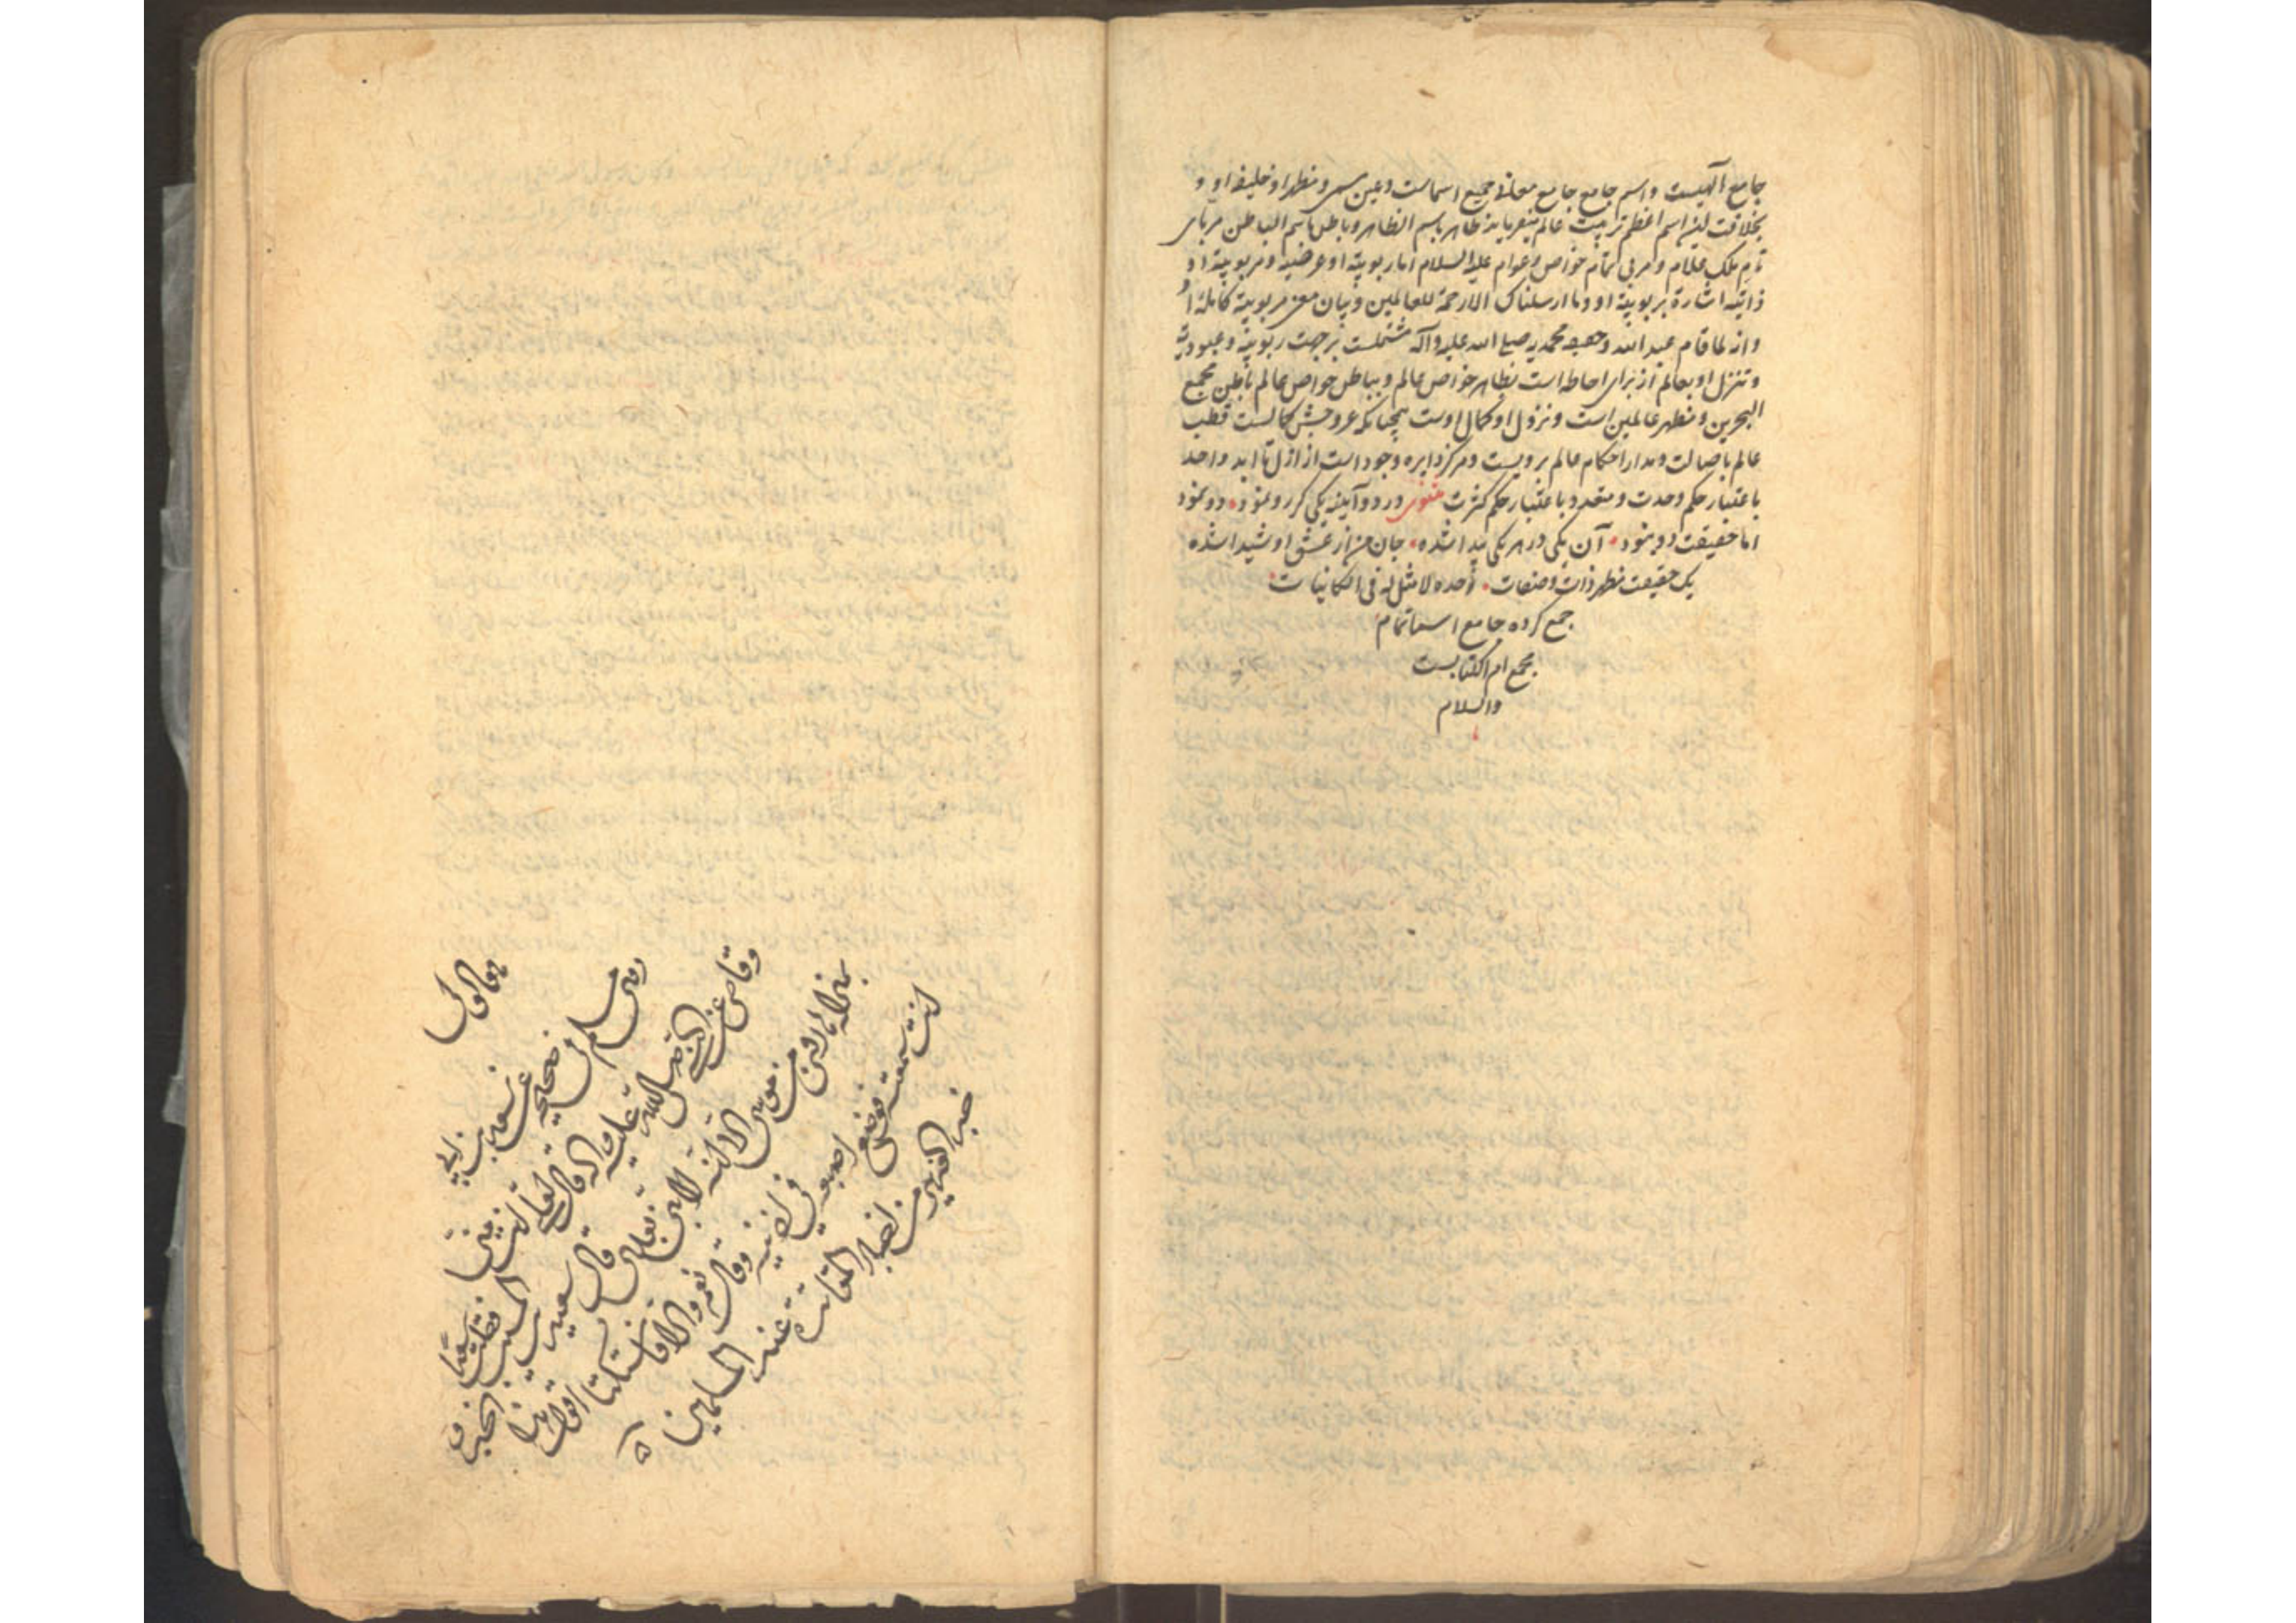 جامع آلهیست و اسم جامع جامع معانی جمیع اسماست و عین مسمی و مظهر او خلیفه او و
بخلافت این اسم اعظم تربیت عالم میفرماید ظاهر باسم الظاهر و باطن باسم الباطن
ملک علام و مربی تمام خواص و عوام علیه السلام اما ربوبیة او عرضیه و مربوبیة او
ذاتیه اشارة بربوبیة او وما ارسلناک الا رحمة للعالمین و بیان مربوبیة کامله او
وانه لما قام عبد الله و حقیقه محمدیه صلی الله علیه و آله مشتملست بر جهت ربوبیة و عبودیة
و تنزل او بعالم از برای احاطه است بظاهر خواص عالم و بباطن خواص عالم باطن مجمع
البحرین و مظهر عالمین است و نزول او کمال اوست همچنانکه عروجش کمالست قطب
عالم باصالت و مدار احکام عالم برویست و مرکز دایره وجود است از ازل تا ابد واحد
باعتبار حکم وحدت و متعدد باعتبار حکم کثرت مثنوی در دو آینه یکی گر رو نمود دو نمود
اما حقیقت دو نبود آن یکی در هر یکی پیدا شده جان من از عشق او شیدا شده
یک حقیقت مظهر ذات و صفات احده لا مثل له فی الکائنات
جمع کرده جامع اسما تمام
مجمع ام الکتابست
والسلام
روی مسلم فی صحیحه عن سعد بن ابی
وقاص عن النبی صلی الله علیه واله قال لعلی انت منی
بمنزلة هارون من موسی الا انه لا نبی بعدی قال سعید بن المسیب فقلت لسعد
انت سمعت
فی اذنیه وقال نعم والا فاستکتا اقول هذا الخبر
المسلمین